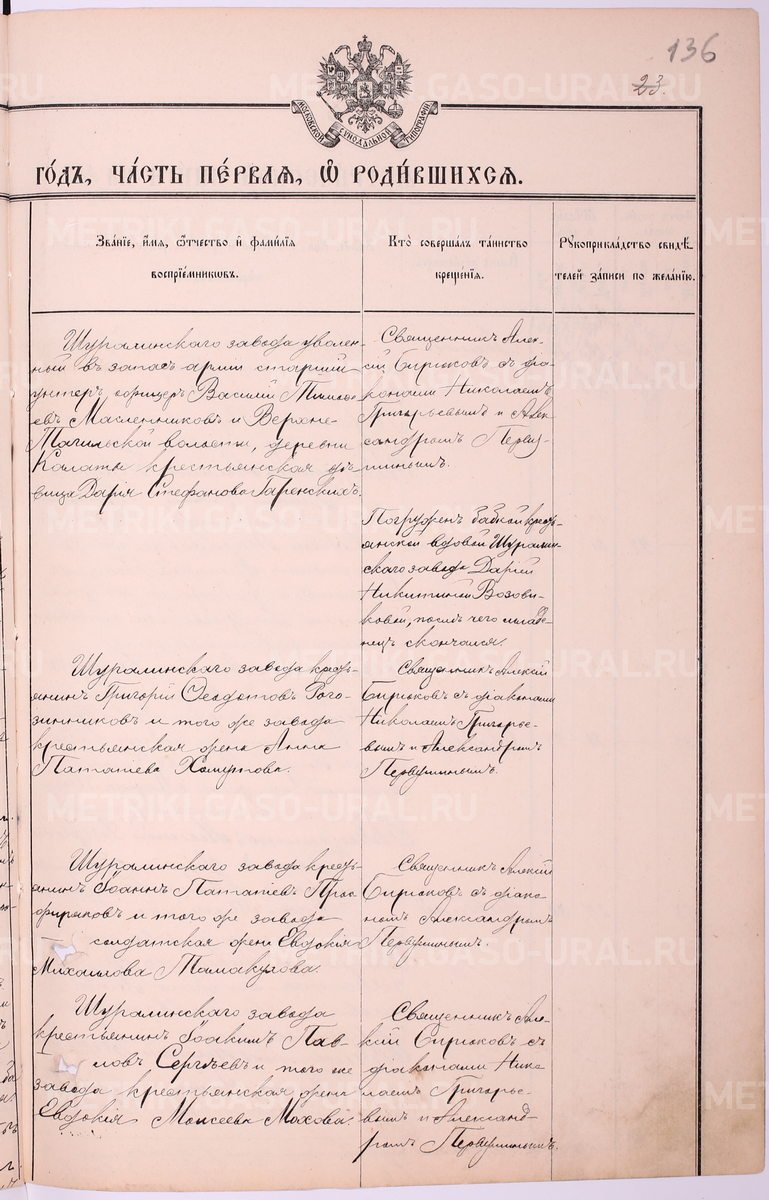 136
23.
МОСКОВСКОЙ СѴНОДАЛЬНОЙ ТИПОГРАФІИ
ГО́ДЪ, ЧА́СТЬ ПЕ́РВАѦ, Ѡ҆ РОДИ́ВШИХСѦ.
Зва́нїе, и҆́мѧ, ѻ҆́тчество и҆ фами́лїѧ
воспрїе́мникѡвъ.
Кто̀ соверша́лъ та́инство
креще́нїѧ.
Рꙋкоприкла́дство свидѣ́-
телей за́писи по жела́нїю.
Шуралинскаго завода уволен-
ный въ запасъ арміи старшій
унтеръ офицеръ Василій
евъ Масленниковъ и Верхне-
Тагильской волости, деревни
Калаты крестьянская дѣ-
вица Дарія Стефанова
Священникъ Алек-
сій Бирюковъ съ діа-
конами Николаемъ
Григорьевымъ и Алек-
сандромъ Перву-
шинымъ.
Погруженъ бабкой кресть-
янской вдовой Шуралин-
скаго завода Даріей
Никитиной Возови-
ковой, послѣ чего младе-
нецъ скончался.
Шуралинскаго завода кресть-
янинъ Григорій Ѳеодотовъ Рого-
зинниковъ и того же завода
крестьянская жена Анна
Ипатіева Хомутова.
Священникъ Алексій
Бирюковъ съ діаконами
Николаемъ Григорье-
вымъ и Александромъ
Первушинымъ.
Шуралинскаго завода кресть-
янинъ Іоаннъ Ипатіевъ Прос-
фиряковъ и того же завода
солдатская жена Евдокія
Михаилова Тамакулова.
Священникъ Алексій
Бирюковъ съ діако-
номъ Александромъ
Первушинымъ.
Шуралинскаго завода
крестьянинъ Іоакимъ Пав-
ловъ Сергѣевъ и того же
завода крестьянская жена
Евдокія Моисеева Махова
Священникъ Але-
ксій Бирюковъ съ
діаконами Нико-
лаемъ Григорье-
вымъ и Александ-
ромъ Первушинымъ.
METRIKI.GASO-URAL.RU